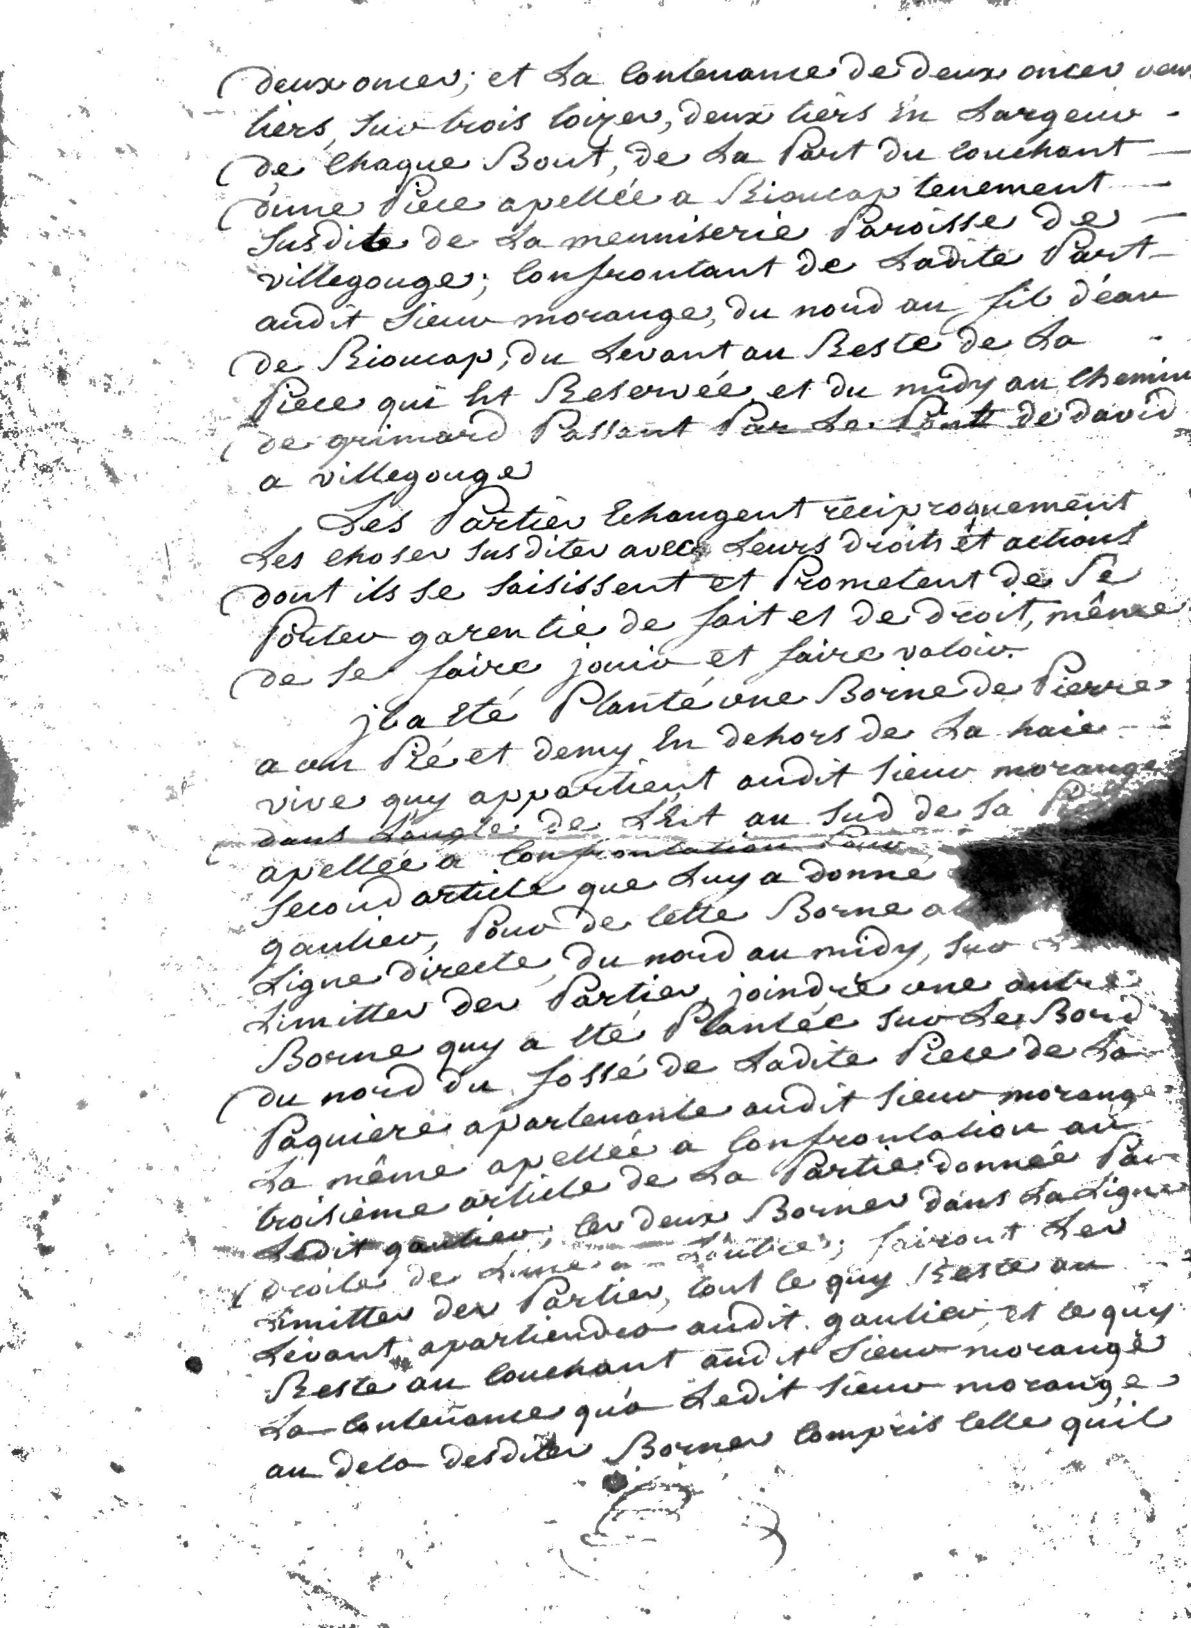 deux onces; et La Contenance de deux onces
tiers, sur trois toizes, deux tiers En Largeur -
de Chaque Bout, de La Part du Couchant
d'une Piece apellée a Rioucap tenement
Susdite de La meuniserie Paroisse de
villegouge; Confrontant de Ladite Part
audit Sieur morange, du nord au fil d'éau
de Rioucap, du Levant au Reste de La
Piece qui Est Reservée, et du midy au Chemin
de grimard Passant Par Le Pontt de david
a villegouge
Les Parties Echangent reciproquement
Les choses susdites avec Leurs droits et actions
dont ils se saisissent et Prometent de Se
Porter garentie de fait et de droit, même
de se faire jouir et faire valoir.
jl a Eté Planté une Borne de Pierre
a un Pié et demy En dehors de La haie
vive quy appartient audit Sieur morange
dans L'angle de L'Est au Sud de sa
apellée a Confrontation Pour
Second article que Luy a donné
gautier, Pour de Cette Borne
Ligne directe, du nord au midy, sur
Limittes des Parties, joindre une autre
Borne quy a Eté Plantée sur Le Bord
du nord du fossé de Ladite Piece de La
Paquiere apartenante audit Sieur morange
La même apellée a Confrontation au
troisième article de La Partie donnée Par
Ledit gautier, les deux Bornes dans La Ligne
droite de L'une a L'autre; fairont Les
Limittes des Parties, tout Ce quy Reste au
Levant apartiendra audit gautier, et Ce quy
Reste au Couchant audit Sieur morange
La Contenance qu'a Ledit Sieur morange
au dela desdites Bornes Compris Celle qu'il